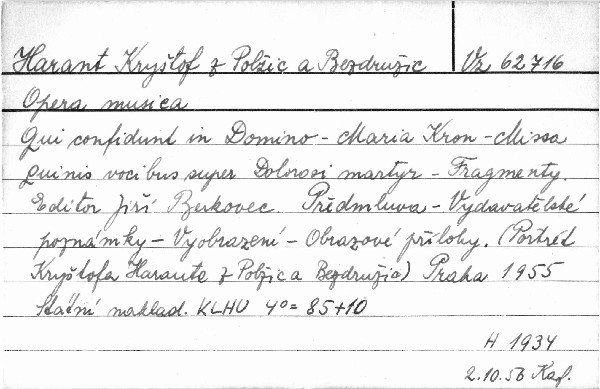 Harant Kryštof z Polžic a Bezdružic Vz 62716
Opera musica
Qui confidunt in Domino - Maria Kron - Missa
quinis vocibus super Dolorosi martyr - Fragmenty.
Editor Jiří Berkovec. Předmluva - Vydavatelské
poznámky - Vyobrazení - Obrazové přílohy. (Portrét
Kryštofa Haranta z Polžic a Bezdružic) Praha 1955
Státní naklad. KLHU 4° = 85+10
H 1934
2.10.56 Kaf.